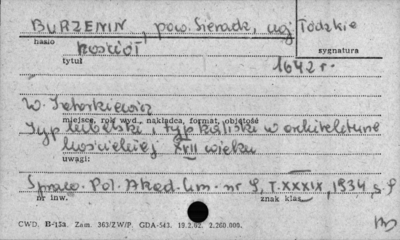 BURZENIN, pow. Sieradz, woj. Łódzkie
hasło
sygnatura
kościół
tytuł
1642 r.
W. Tatarkiewicz
miejsce, rok wyd., nakładca, format, objętość
Typ lubelski i typ kaliski w architekturze
kościelnej XVII wieku
uwagi:
Sprawo. Pol. Akad. Um. nr 9, T. XXXIX, 1934, s. 9
nr inw.
znak klas.
CWD. B-13a. Zam. 363/ZW/P. GDA-543. 19.2.62. 2.260.000.